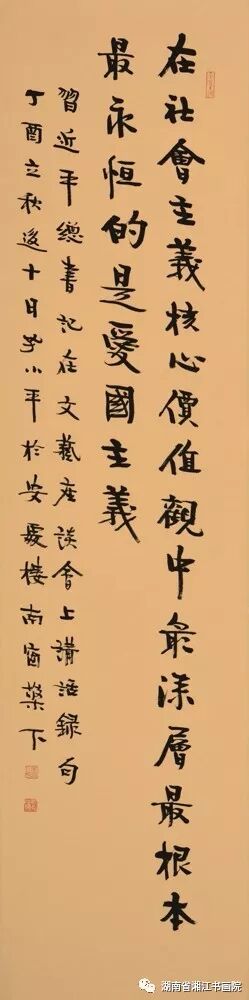 在社會主義核心價值觀中最深層最根本
最永恒的是愛國主義
習近平總書記在文藝座談會上講話錄句
丁酉立秋後十日 小平於安 樓南窗 下
湖南省湘江书画院